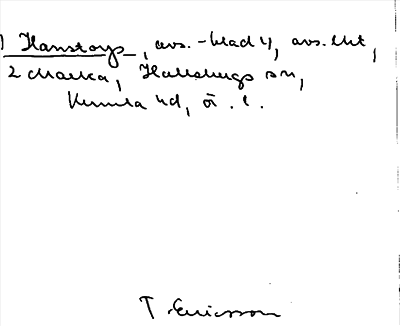 1 Hanstorp, avs.-blad 4, avs. lht,
2 Marka, Hallsbergs sn,
Kumla hd, ör. l.
T. Ericsson